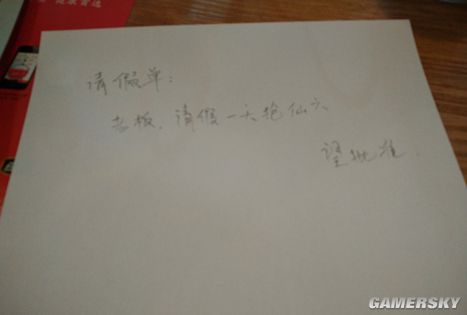 请假单：
老板，请假一天抢仙六
望批准.
GAMERSKY